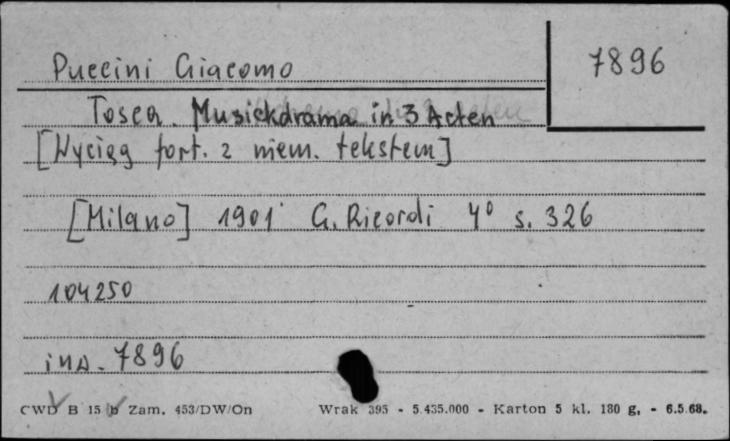 Puccini Giacomo
7896
Tosca. Musickdrama in 3 Acten
[Wyciąg fort. z niem. tekstem]
[Milano] 1901 G. Ricordi 4° s. 326
104250
inw. 7896
CWD B 15 b Zam. 453/DW/On Wrak 395 - 5.435.000 - Karton 5 kl. 180 g. - 6.5.68.